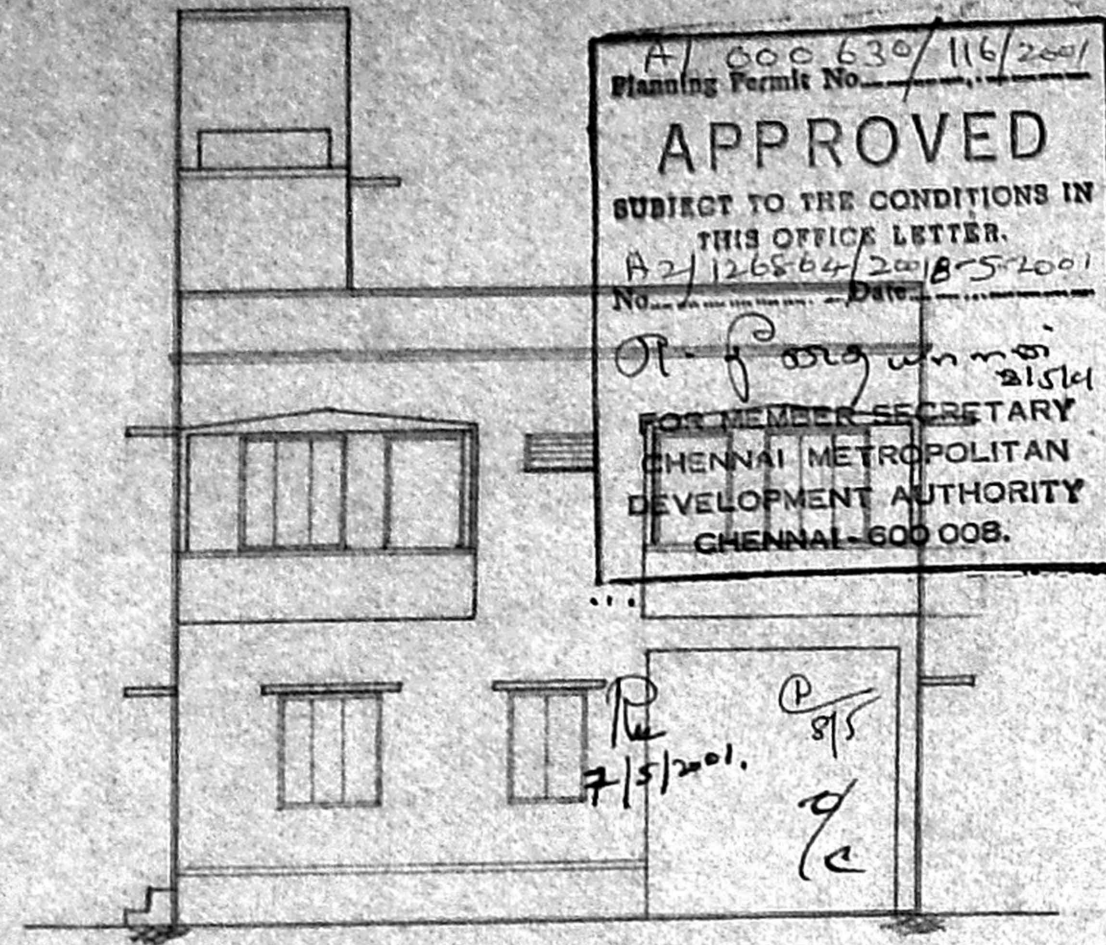 A/ 000 630/116/2001
Planning Permit No.
APPROVED
SUBJECT TO THE CONDITIONS IN
THIS OFFICE LETTER.
A2/126564/2001 8-5-2001
No. Date
8/5/01
FOR MEMBER SECRETARY
CHENNAI METROPOLITAN
DEVELOPMENT AUTHORITY
CHENNAI-600 008.
7/5/2001.
8/5